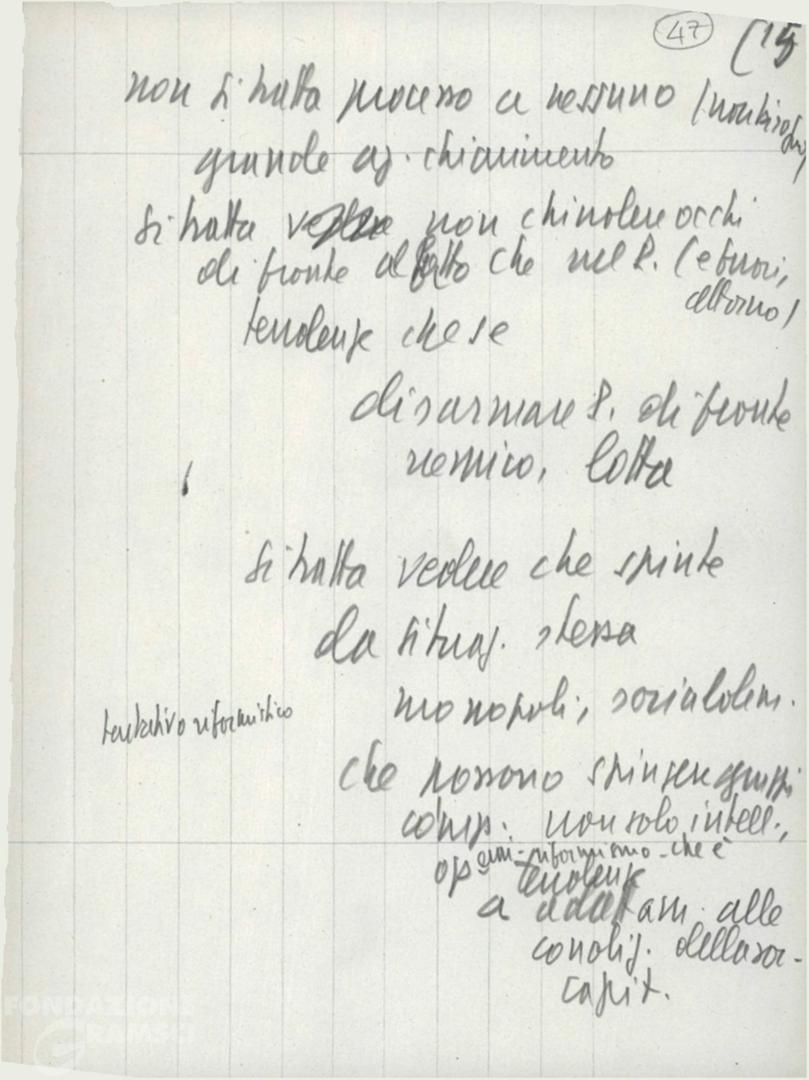 47 (15
non si tratta processo a nessuno (non bisogn)
grande az. chiarimento
si tratta non chiudere occhi
di fronte al fatto che nel P. (e fuori,
attorno)
tendenze che se
disarmare P. di fronte
nemico, lotta
si tratta vedere che spinte
da situaz. stessa
monopoli, socialdem.
tentativo riformistico
che possono spingere gruppi
comp. non solo intell.,
op riformismo - che è
tendenze
a adattam. alle
condiz. della soc-
capit.
FONDAZIONE
GRAMSCI